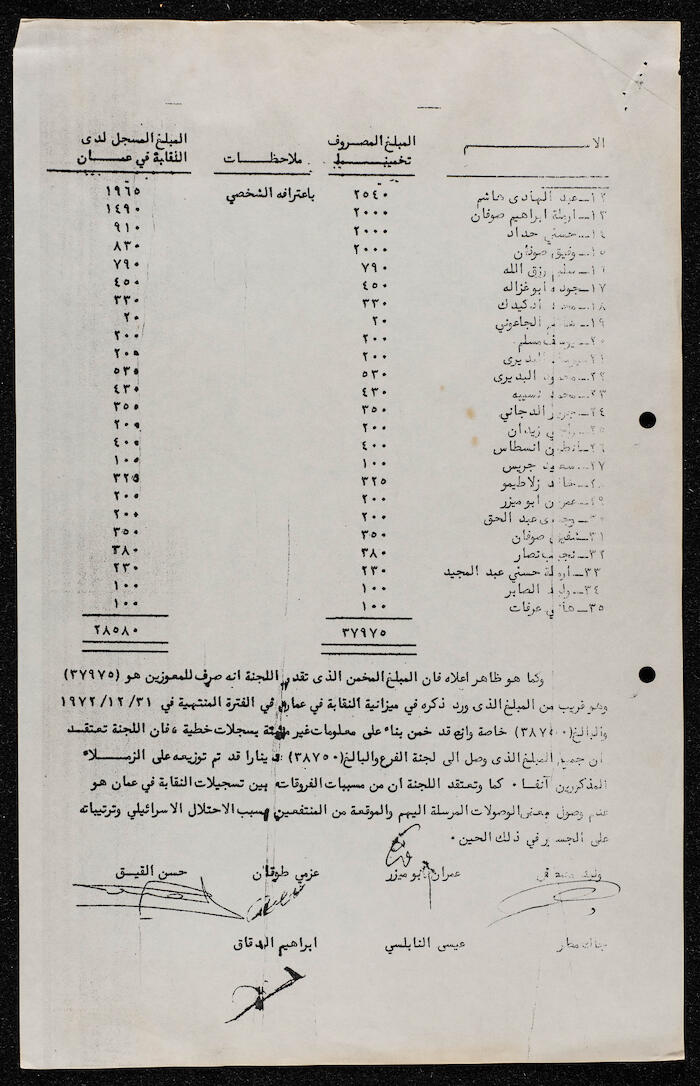 الاسـم المبلغ المصروف تخمينـا ملاحظـات المبلغ المسجل لدى النقابة في عمـان
١٢ـ عبد الهادى هاشم ٢٥٤٠ باعترافه الشخصي ١٩٦٥
١٣ـ ارملة ابراهيم صوفان ٢٠٠٠ ١٤٩٠
١٤ـ حسني حداد ٢٠٠٠ ٩١٠
١٥ـ وفيق صوفان ٢٠٠٠ ٨٣٠
١٦ـ سليم رزق الله ٧٩٠ ٧٩٠
١٧ـ جودة ابو غزاله ٤٥٠ ٤٥٠
١٨ـ ٣٣٠ ٣٣٠
١٩ـ الجاعوني ٢٠ ٢٠
٢٠ـ يوسف مسلم ٢٠٠ ٢٠٠
٢١ـ البديرى ٢٠٠ ٢٠٠
٢٢ـ محمود البديرى ٥٣٠ ٥٣٠
٢٣ـ محمد نسيبه ٤٣٠ ٤٣٠
٢٤ـ الدجاني ٣٥٠ ٣٥٠
٢٥ـ زيدان ٢٠٠ ٢٠٠
٢٦ـ انسطاس ٤٠٠ ٤٠٠
٢٧ـ جريس ١٠٠ ١٠٠
٢٨ـ خالد زلاطيمو ٣٢٥ ٣٢٥
٢٩ـ عمران ابو ميزر ٢٠٠ ٢٠٠
٣٠ـ عبد الحق ٢٠٠ ٢٠٠
٣١ـ شفيق صوفان ٣٥٠ ٣٥٠
٣٢ـ نجيب نصار ٣٨٠ ٣٨٠
٣٣ـ ارملة حسني عبد المجيد ٢٣٠ ٢٣٠
٣٤ـ وليد الصابر ١٠٠ ١٠٠
٣٥ـ هاني عرفات ١٠٠ ١٠٠
٣٧٩٧٥ ٢٨٥٨٠
وكما هو ظاهر اعلاه فان المبلغ المخمن الذى تقدر اللجنة انه صرف للمعوزين هو (٣٧٩٧٥)
وهو قريب من المبلغ الذى ورد ذكره في ميزانية النقابة في عمان في الفترة المنتهية في ١٩٧٢/١٢/٣١
والبالغ (٣٨٧٥٠) خاصة وانه قد خمن بناء على معلومات غير مثبتة بسجلات خطية ، فان اللجنة تعتقد
ان جميع المبلغ الذى وصل الى لجنة الفرع والبالغ (٣٨٧٥٠) دينارا قد تم توزيعه على الزملاء
المذكورين آنفا ٠ كما وتعتقد اللجنة ان من مسببات الفروقات بين تسجيلات النقابة في عمان هو
عدم وصول بعض الوصولات المرسلة اليهم والموقعة من المنتفعين بسبب الاحتلال الاسرائيلي وترتيباته
على الجسر في ذلك الحين ٠
وليد عمران ابو ميزر عزمي طوقان حسن القيق
عيسى النابلسي ابراهيم الدقاق